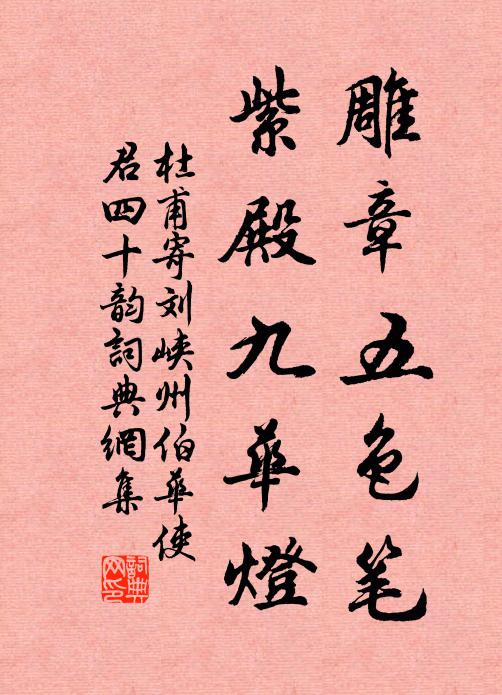 雕章五色笔
紫殿九華燈
杜甫寄刘峡州伯華使
君四十韵詞典網集
詞典
网印